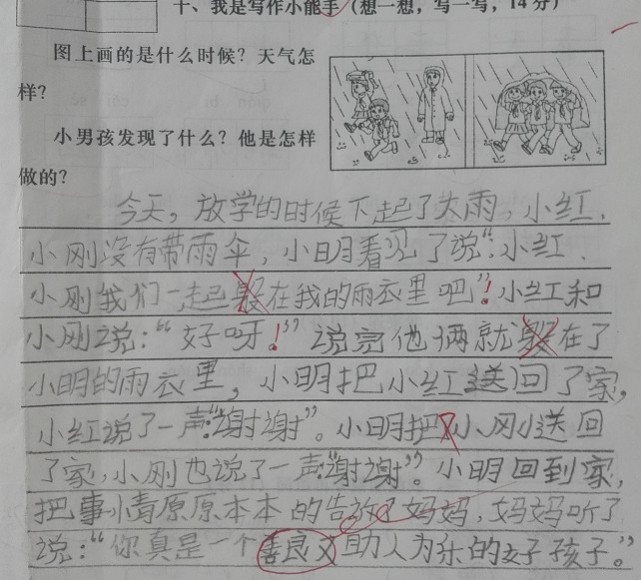 十、我是写作小能手（想一想，写一写，14分）
图上画的是什么时候？天气怎
样？
小男孩发现了什么？他是怎样
做的？
今天，放学的时候下起了大雨，小红、
小刚没有带雨伞，小明看见了说“：小红、
小刚我们一起在我的雨衣里吧”！小红和
小刚说：“好呀！”说完他俩就在了
小明的雨衣里，小明把小红送回了家，
小红说了一声：“谢谢”。小明把小刚送回
了家，小刚也说了一声：“谢谢”。小明回到家，
把事情原原本本的告放了妈妈，妈妈听了
说：“你真是一个善良又助人为乐的好孩子。”